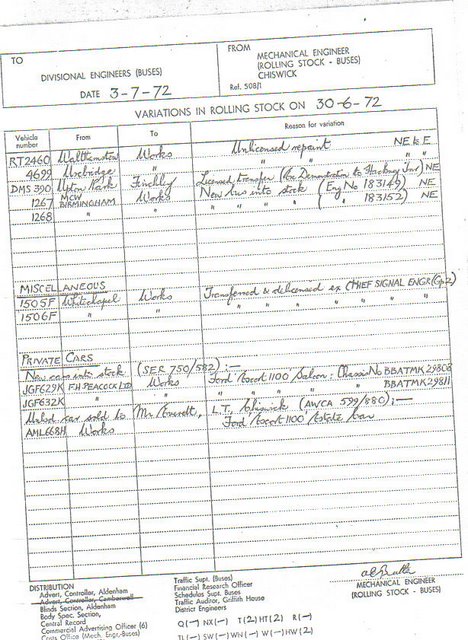 TO
DIVISIONAL ENGINEERS (BUSES)
DATE 3-7-72
FROM
MECHANICAL ENGINEER
(ROLLING STOCK - BUSES)
CHISWICK
Ref. 508/1
VARIATIONS IN ROLLING STOCK ON 30-6-72
Vehicle number From To Reason for variation
RT2460 Walthamstow Works Unlicensed repaint NE to E
4699 Uxbridge " " " " "
DMS 390 Upton Park Finchley Licensed transfer (Ex Demonstration to Hackney) NE
1267 MCW BIRMINGHAM Works New bus into stock (Eng No 183149) NE
1268 " " " " ( " 183152) NE
MISCELLANEOUS
1505F Whitechapel Works Transferred & delicensed ex CHIEF SIGNAL ENGR (Gp.2)
1506F " " " " " " " " "
PRIVATE CARS
New cars into stock (SER 750/582) :-
JGF629K F.H. PEACOCK LTD Works Ford Escort 1100 Saloon: Chassis No BBATMK29808
JGF632K " " " " " BBATMK29811
Unlicd car sold to Mr. L.T. Chiswick (AWCA 599/880) :-
AML668H Works Ford Escort 1100 Estate Car
MECHANICAL ENGINEER
(ROLLING STOCK - BUSES)
DISTRIBUTION
Advert. Controller, Aldenham
Advert. Controller, Camberwell
Blinds Section, Aldenham
Body Spec. Section,
Central Record
Commercial Advertising Officer (6)
Costs Office (Mech. Engr-Buses)
Traffic Supt. (Buses)
Financial Research Officer
Schedules Supt. Buses
Traffic Auditor, Griffith House
District Engineers
Q(—) NX(—) T(2) HT(2) R(—)
TL(—) SW(—) WN(—) W(—) HW(2)